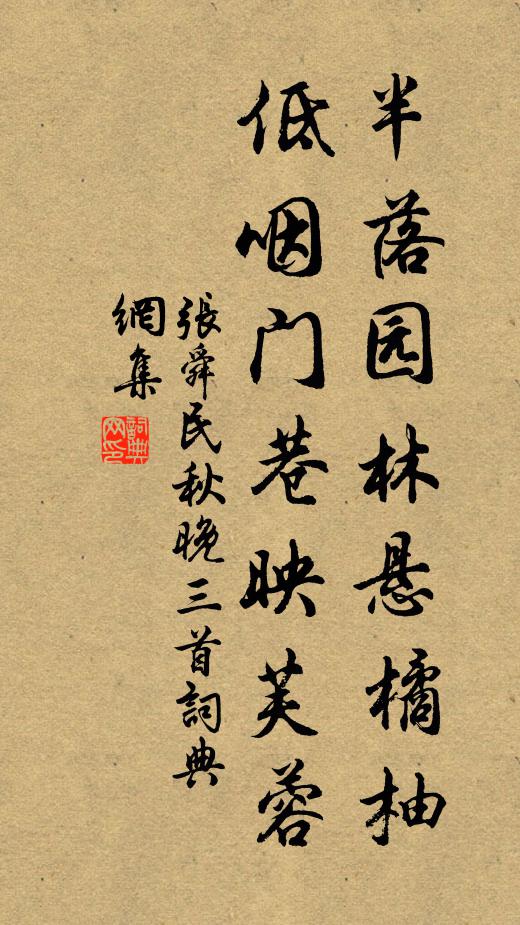 半落园林悬橘柚
低咽门巷映芙蓉
張舜民秋晚三首詞典
網集
詞典
网印